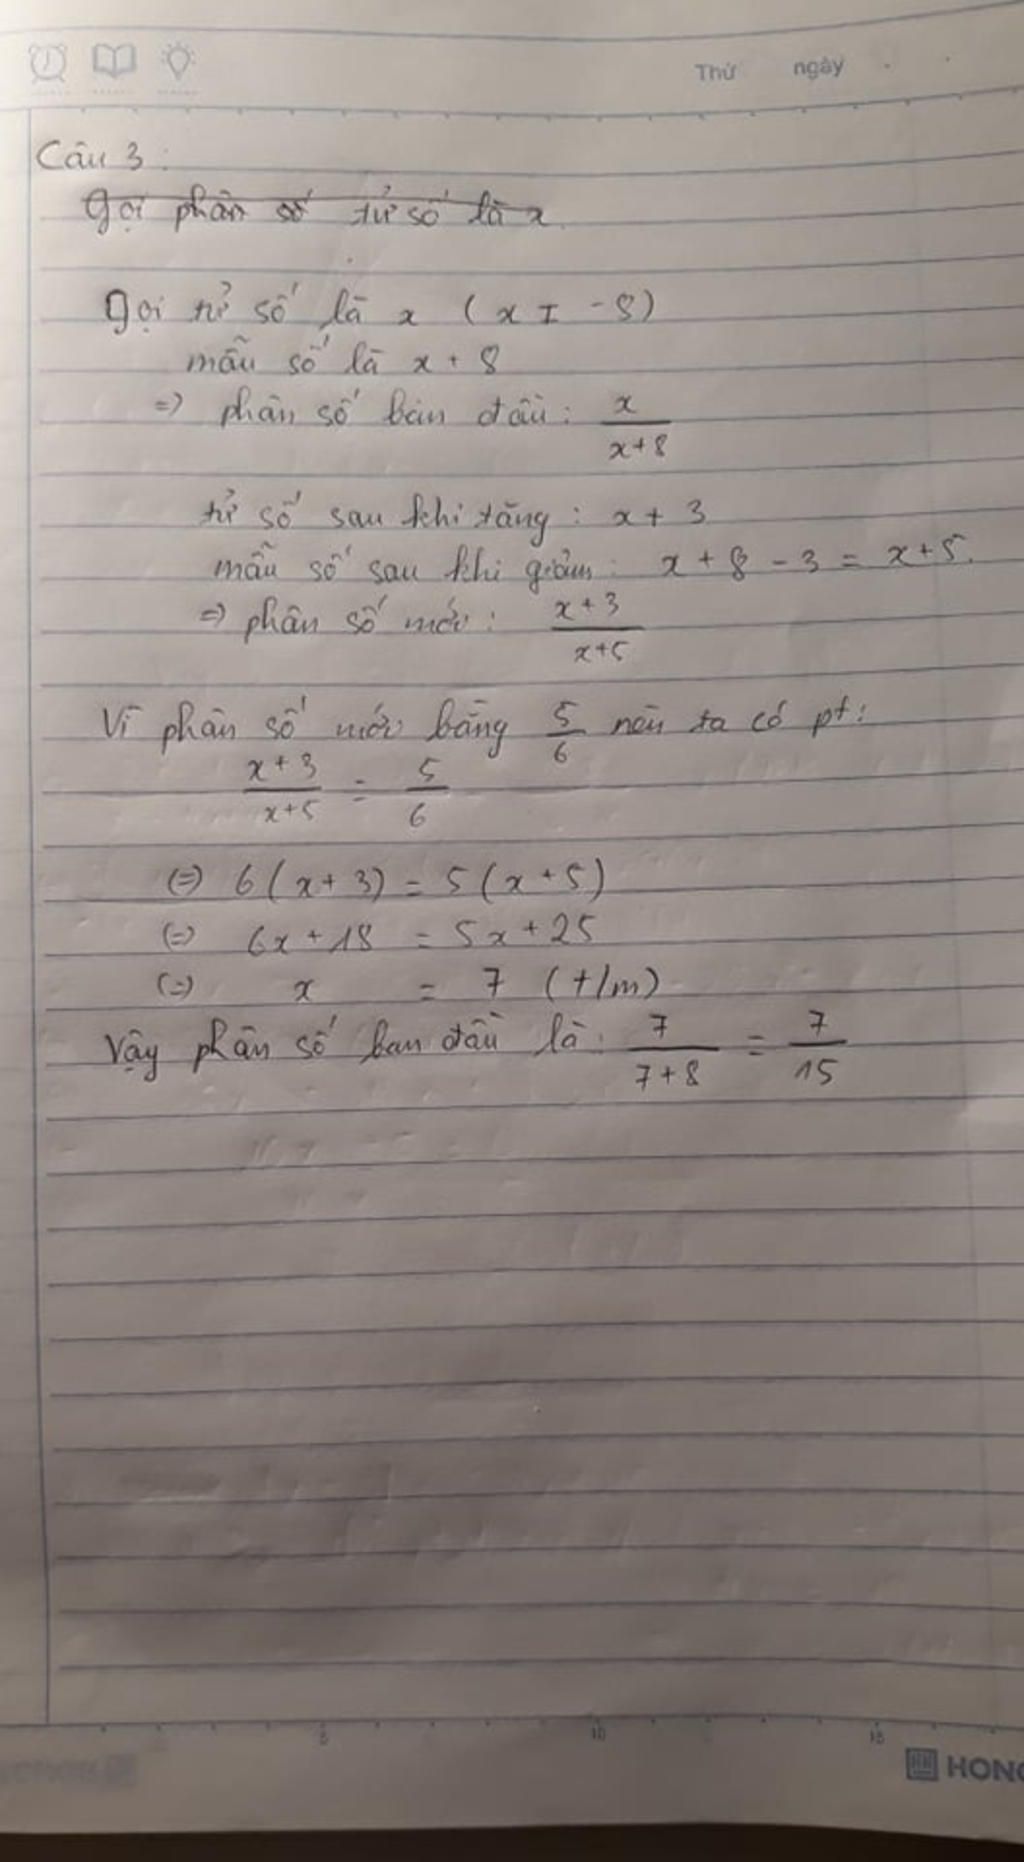 Thứ ngày
Câu 3:
Gọi phân số tử số là x
Gọi tử số là x (x ≠ -8)
mẫu số là x + 8
=> phân số ban đầu: x/(x+8)
tử số sau khi tăng: x + 3
mẫu số sau khi giảm: x + 8 - 3 = x + 5.
=> phân số mới: (x+3)/(x+5)
Vì phân số mới bằng 5/6 nên ta có pt:
(x+3)/(x+5) = 5/6
(=) 6(x+3) = 5(x+5)
(=) 6x + 18 = 5x + 25
(=) x = 7 (t/m)
Vậy phân số ban đầu là: 7/(7+8) = 7/15
5 10 15